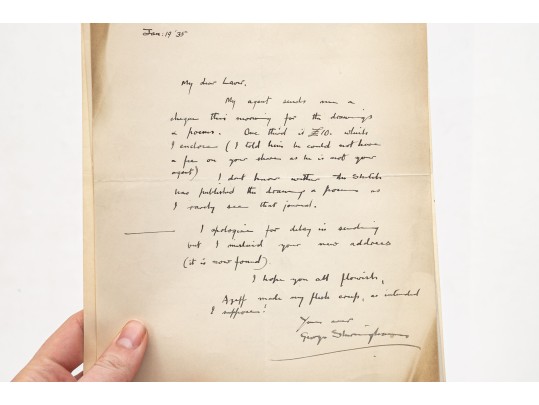 Jan: 19 '35
My dear Laver.
My agent sends me a
cheque this morning for the drawings
& poems. One third is £10. which
I enclose (I told him he could not have
a fee on your share as he is not your
agent) I dont know whether the Sketch
has published the drawings & poems as
I rarely see that journal.
I apologise for delay in sending
but I mislaid your new address
(it is now found).
I hope you all flourish,
made my flesh creep, as intended
I suppose!
Yours ever
George Sheringham